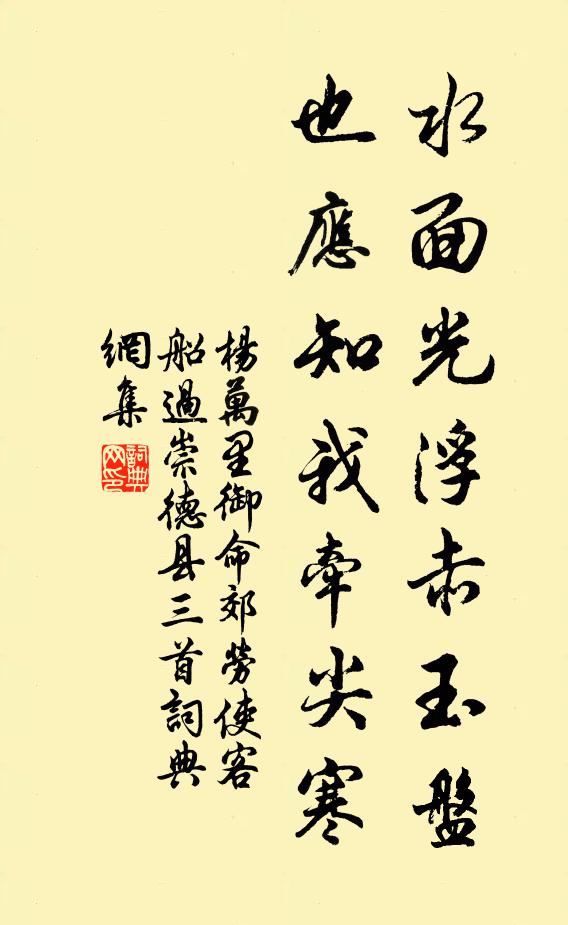 水面光浮赤玉盤
也應知我牽尖寒
楊萬里御命郊勞使客
船過崇德县三首詞典
網集
詞典
网印